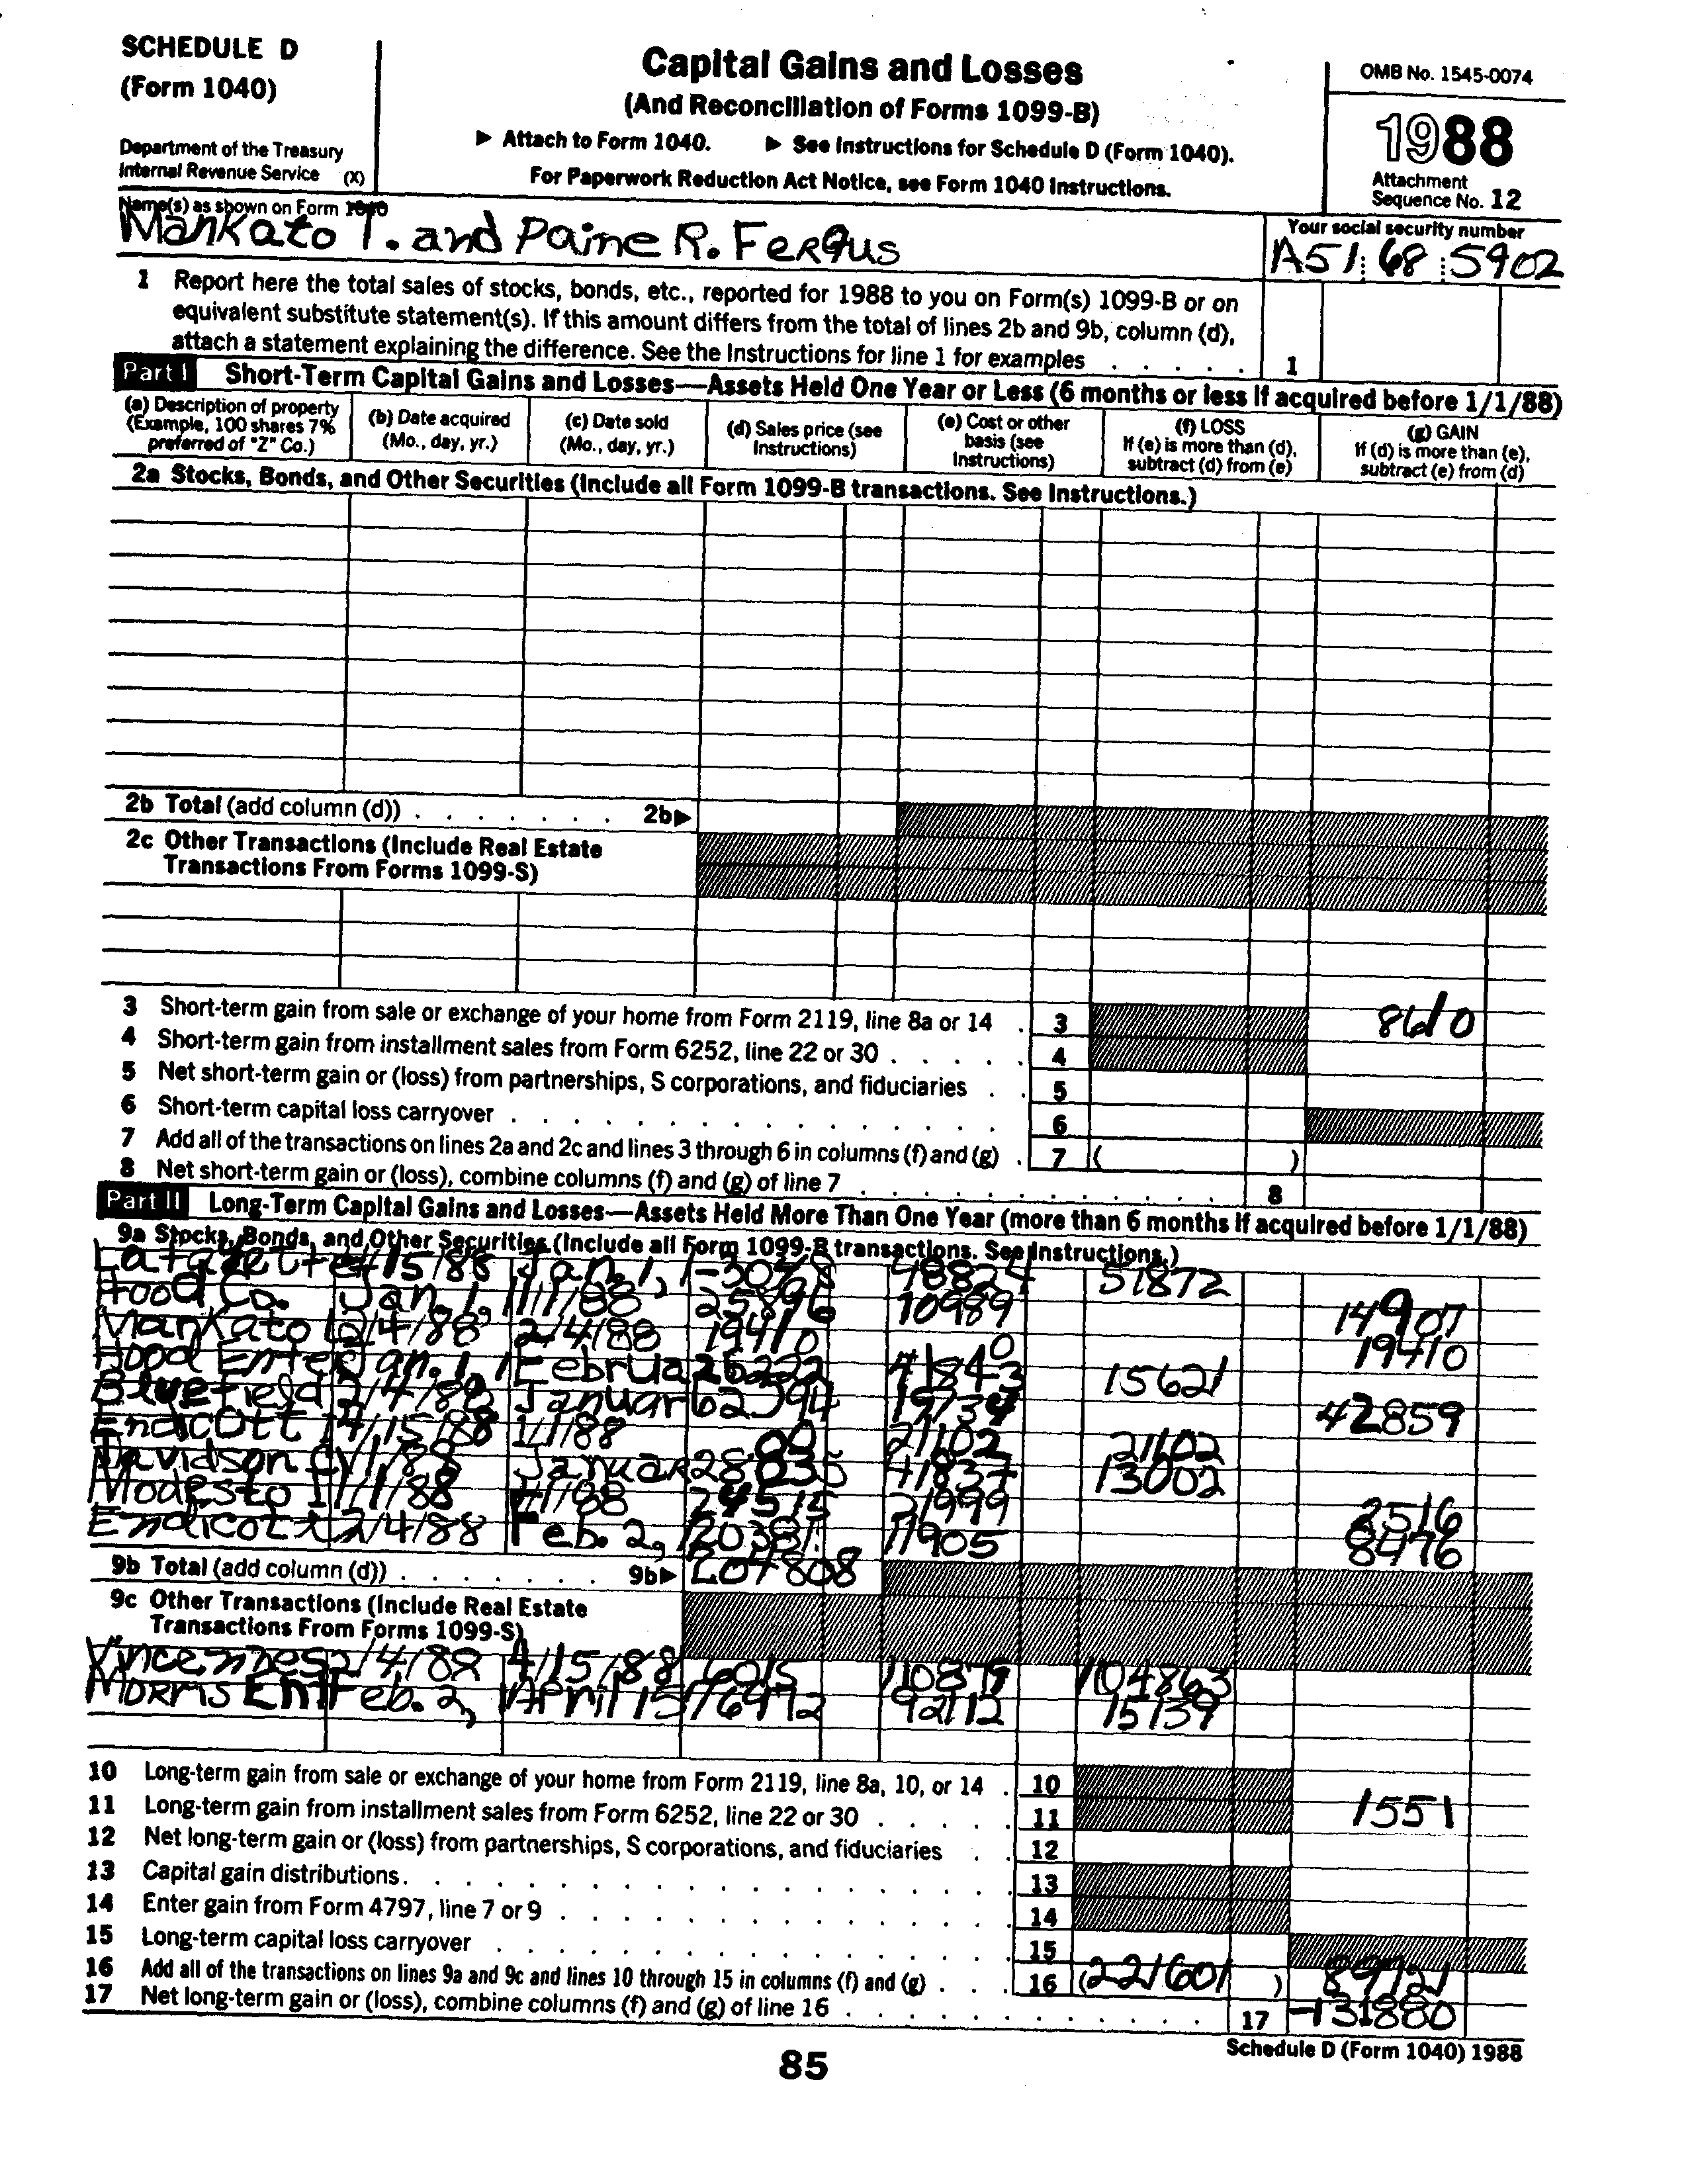 SCHEDULE D
(Form 1040)
Department of the Treasury
Internal Revenue Service (X)
Capital Gains and Losses
(And Reconciliation of Forms 1099-B)
▶ Attach to Form 1040. ▶ See Instructions for Schedule D (Form 1040).
For Paperwork Reduction Act Notice, see Form 1040 Instructions.
OMB No. 1545-0074
1988
Attachment
Sequence No. 12
Name(s) as shown on Form 1040
Mankato T. and Paine R. Fergus
Your social security number
A51 68 5902
1 Report here the total sales of stocks, bonds, etc., reported for 1988 to you on Form(s) 1099-B or on
equivalent substitute statement(s). If this amount differs from the total of lines 2b and 9b, column (d),
attach a statement explaining the difference. See the Instructions for line 1 for examples . . . . . 1
Part I Short-Term Capital Gains and Losses—Assets Held One Year or Less (6 months or less if acquired before 1/1/88)
(a) Description of property
(Example, 100 shares 7%
preferred of "Z" Co.)
(b) Date acquired
(Mo., day, yr.)
(c) Date sold
(Mo., day, yr.)
(d) Sales price (see
Instructions)
(e) Cost or other
basis (see
Instructions)
(f) LOSS
If (e) is more than (d),
subtract (d) from (e)
(g) GAIN
If (d) is more than (e),
subtract (e) from (d)
2a Stocks, Bonds, and Other Securities (Include all Form 1099-B transactions. See Instructions.)
2b Total (add column (d)) . . . . . . . 2b▶
2c Other Transactions (Include Real Estate
Transactions From Forms 1099-S)
3 Short-term gain from sale or exchange of your home from Form 2119, line 8a or 14 . 3 8610
4 Short-term gain from installment sales from Form 6252, line 22 or 30 . . . . . 4
5 Net short-term gain or (loss) from partnerships, S corporations, and fiduciaries . . 5
6 Short-term capital loss carryover . . . . . . . . . . . . . . . 6
7 Add all of the transactions on lines 2a and 2c and lines 3 through 6 in columns (f) and (g) . 7 ( )
8 Net short-term gain or (loss), combine columns (f) and (g) of line 7 . . . . . . . . . . . . 8
Part II Long-Term Capital Gains and Losses—Assets Held More Than One Year (more than 6 months if acquired before 1/1/88)
9a Stocks, Bonds, and Other Securities (Include all Form 1099-B transactions. See Instructions.)
Lafayette 4/15/88 Jan. 1, 1 -3048 48824 51872
Hood Co. Jan. 1, 1/1/88 25896 10989 14907
Mankato 2/4/88 2/4/88 19410 0 19410
Hood Enter Jan. 1, 1 Februa 26222 41843 15621
Bluefield 2/4/88 Januar 62594 19734 42859
Endicott 4/15/88 1/1/88 00 21102 21102
Davidson 1/1/88 Januar 28835 41837 13002
Modesto 1/1/88 1/1/88 24515 21999 2516
Endicott 2/4/88 Feb. 2, 20381 11905 8476
9b Total (add column (d)) . . . . . . . 9b▶ 204808
9c Other Transactions (Include Real Estate
Transactions From Forms 1099-S)
Vincennes 2/4/88 4/15/88 6015 110879 104863
Morris Ent Feb. 2, April 15 76972 92112 15139
10 Long-term gain from sale or exchange of your home from Form 2119, line 8a, 10, or 14 . 10
11 Long-term gain from installment sales from Form 6252, line 22 or 30 . . . . . 11 1551
12 Net long-term gain or (loss) from partnerships, S corporations, and fiduciaries . . 12
13 Capital gain distributions . . . . . . . . . . . . . . . . . 13
14 Enter gain from Form 4797, line 7 or 9 . . . . . . . . . . . . . 14
15 Long-term capital loss carryover . . . . . . . . . . . . . . . 15
16 Add all of the transactions on lines 9a and 9c and lines 10 through 15 in columns (f) and (g) . . . 16 (221601) 89721
17 Net long-term gain or (loss), combine columns (f) and (g) of line 16 . . . . . . . . . . . . 17 -131880
Schedule D (Form 1040) 1988
85